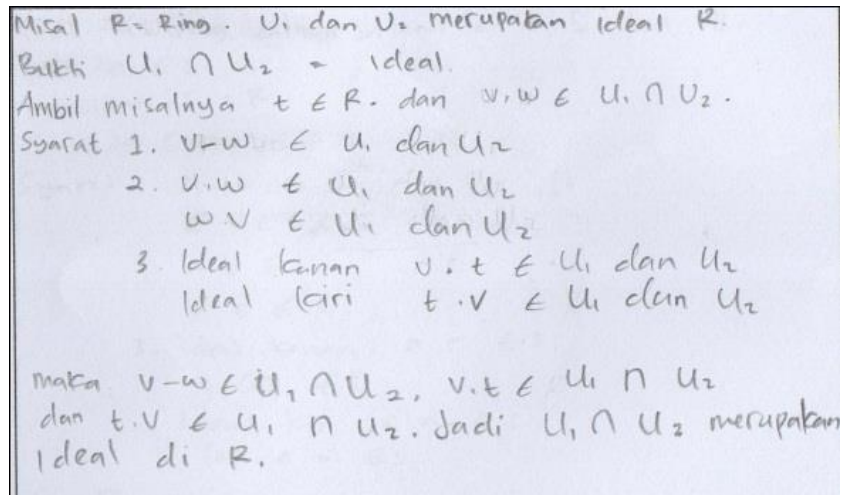 Misal R = Ring. U₁ dan U₂ merupakan Ideal R.
Bukti U₁ ∩ U₂ = Ideal.
Ambil misalnya t ∈ R. dan v,w ∈ U₁ ∩ U₂.
Syarat 1. v-w ∈ U₁ dan U₂
2. v.w ∈ U₁ dan U₂
w.v ∈ U₁ dan U₂
3. Ideal kanan v.t ∈ U₁ dan U₂
Ideal kiri t.v ∈ U₁ dan U₂
maka v-w ∈ U₁ ∩ U₂, v.t ∈ U₁ ∩ U₂
dan t.v ∈ U₁ ∩ U₂. Jadi U₁ ∩ U₂ merupakan
Ideal di R.